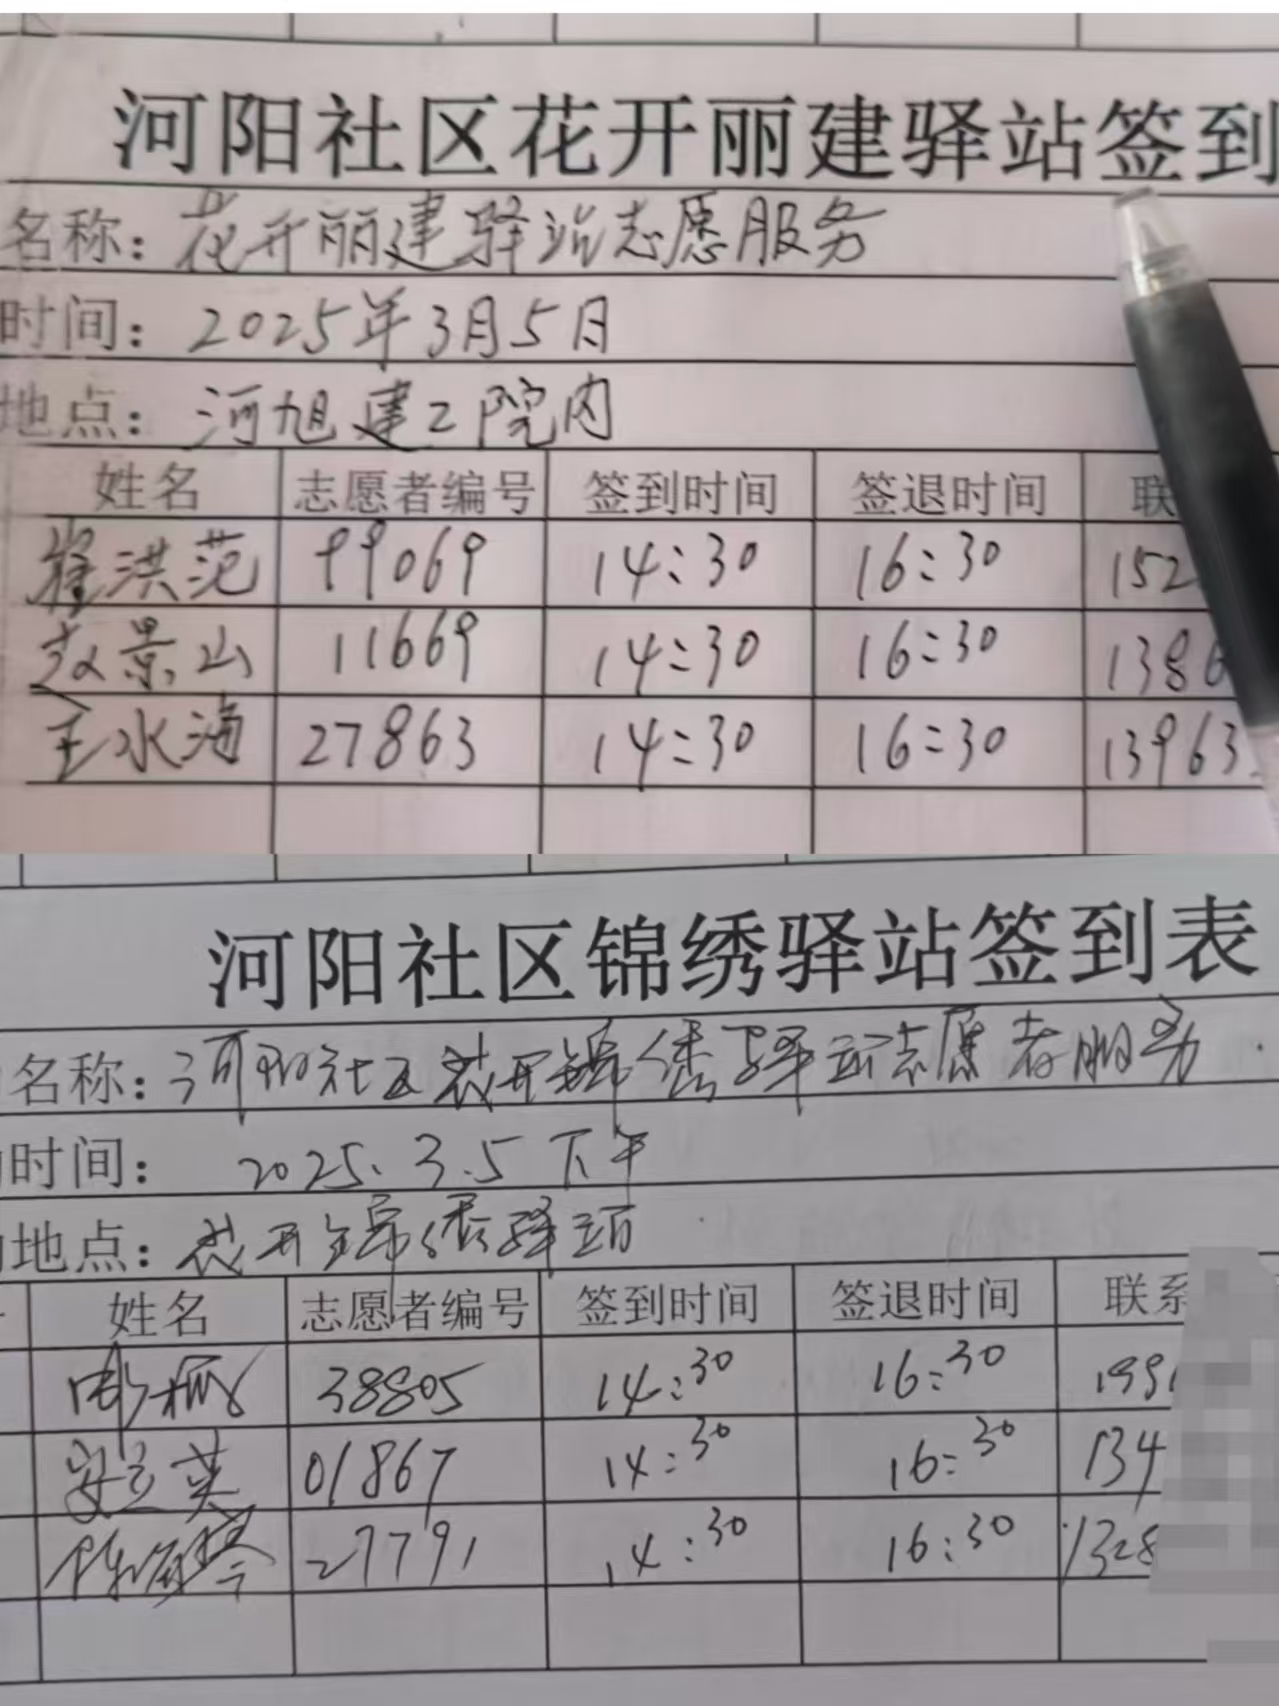 河阳社区花开丽建驿站签到
名称：花开丽建驿站志愿服务
时间：2025年3月5日
地点：河旭建工院内
姓名 志愿者编号 签到时间 签退时间 联
崔洪范 99069 14:30 16:30 152
赵景山 11669 14:30 16:30 1386
王水海 27863 14:30 16:30 13963
河阳社区锦绣驿站签到表
名称：河阳社区花开锦绣驿站志愿者服务
时间：2025.3.5下午
地点：花开锦绣驿站
姓名 志愿者编号 签到时间 签退时间 联系
38805 14:30 16:30 1991
安立英 01867 14:30 16:30 134
27791 14:30 16:30 1328